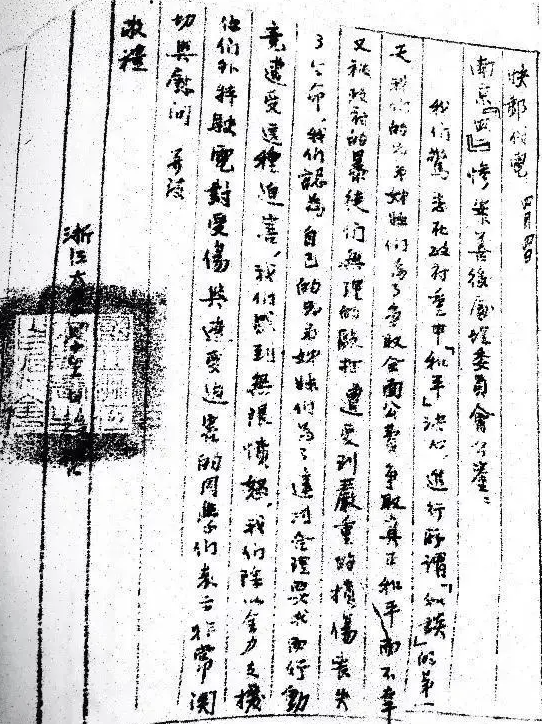 快郵代電 四月四日
南京「四一」慘案善後處理委員會公鑒：
我们驚悉在政府重申「和平」决心，進行所謂「和談」的第一
天我们的兄弟姊妹们為了争取全面公費争取真正和平而不幸
又被政府的暴徒们無理的毆打遭受到嚴重的損傷喪失
了生命，我们認為自己的兄弟姊妹们為了這種合理要求而行動
竟遭受這種迫害，我们感到無限憤怒，我们除以全力支援
你们外特馳電對受傷與遭受迫害的同學们表示非常関
切與慰问 并致
敬禮
浙江大學學生自治會